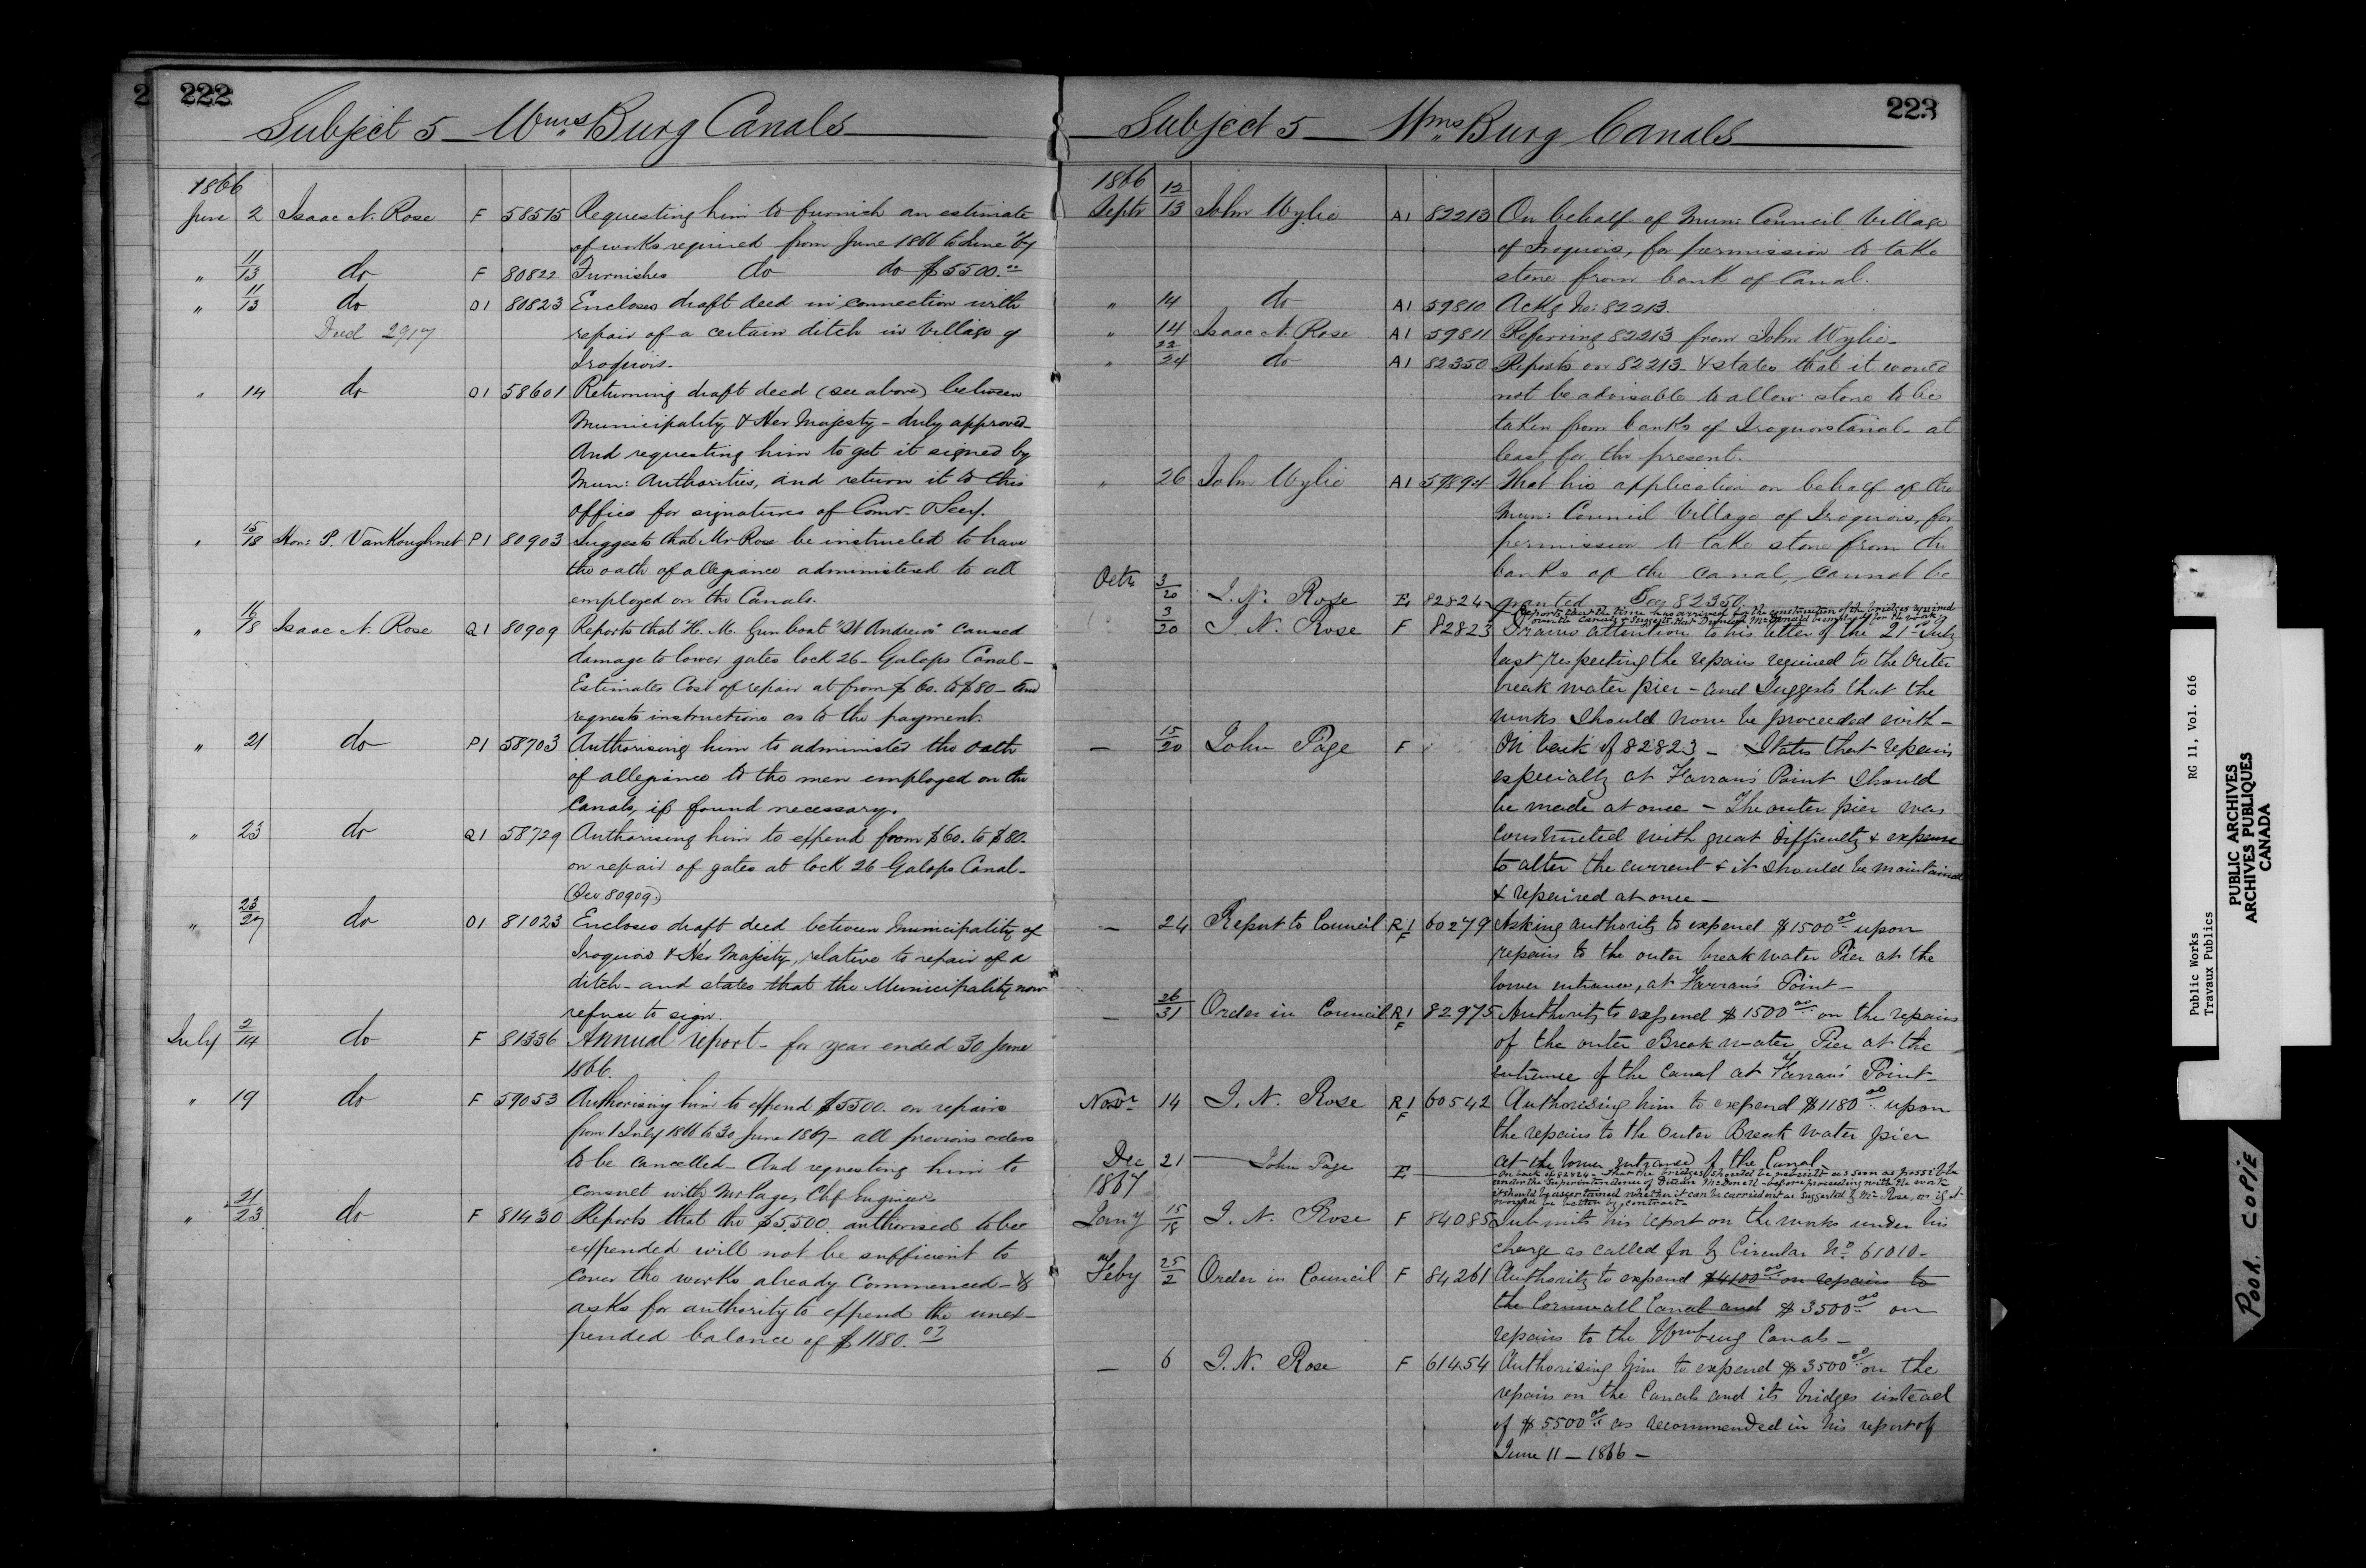 2 222
Subject 5 Wms Burg Canals
1866
June 2 Isaac N. Rose F 58515 Requesting him to furnish an estimate
of works required from June 1866 to June '67
" 11/13 do F 80822 Furnishes do do $5500.00
" 11/13 do O1 80823 Encloses draft deed in connection with
Deed 2917 repair of a certain ditch in Village of
Iroquois.
" 14 do O1 58601 Returning draft deed (see above) between
Municipality & Her Majesty - duly approved -
And requesting him to get it signed by
Mun: Authorities, and return it to this
office for signatures of Comr. & Secy.
" 15/18 Hon: P. VanKoughnet P1 80903 Suggests that Mr Rose be instructed to have
the oath of allegiance administered to all
employed on the Canals.
" 16/18 Isaac N. Rose Q1 80909 Reports that H. M. Gunboat "St Andrews" caused
damage to lower gates lock 26 - Galops Canal -
Estimates Cost of repair at from $60. to $80 - and
requests instructions as to the payment.
" 21 do P1 58703 Authorising him to administer the oath
of allegiance to the men employed on the
Canals, if found necessary.
" 23 do Q1 58729 Authorising him to expend from $60. to $80.
on repair of gates at lock 26 Galops Canal -
(See 80909.)
" 23/27 do O1 81023 Encloses draft deed between Municipality of
Iroquois & Her Majesty, relative to repair of a
ditch - and states that the Municipality now
refuse to sign.
July 2/14 do F 81336 Annual report - for year ended 30 June
1866.
" 19 do F 59053 Authorising him to expend $5500. on repairs
from 1 July 1866 to 30 June 1867 - all previous orders
to be cancelled - And requesting him to
consult with Mr Page, Chf Engineer
" 21/23 do F 81430 Reports that the $5,500 authorised to be
expended will not be sufficient to
cover the works already Commenced - &
asks for authority to expend the unex-
pended balance of $1180.07
223
Subject 5 Wms Burg Canals
1866
Septr 12/13 John Wylie A1 82213 On behalf of Mun: Council Village
of Iroquois, for permission to take
stone from bank of Canal.
" 14 do A1 59810 Ackg No: 82213.
" 14 Isaac N. Rose A1 59811 Referring 82213 from John Wylie -
" 22/24 do A1 82350 Reports on 82213 & states that it would
not be advisable to allow stone to be
taken from banks of Iroquois Canal - at
least, for the present.
" 26 John Wylie A1 59894 That his application on behalf of the
Mun: Council Village of Iroquois, for
permission to take stone from the
banks of the Canal, cannot be
granted See 82350
Octr 3/20 I. N. Rose E 82824 Reports that the time has arrived for the construction of the bridges required
over the Canals & suggests that Duncan McDonell be employed for the work
3/20 I. N. Rose F 82823 Draws attention to his letter of the 21st July
last respecting the repairs required to the Outer
break water pier - and Suggests that the
works should now be proceeded with -
— 15/20 John Page F On back of 82823 - States that repairs
especially at Farran's Point should
be made at once - The outer pier was
constructed with great difficulty & expense
to alter the current & it should be maintained
& repaired at once -
— 24 Report to Council R1/F 60279 Asking authority to expend $1500.00 upon
repairs to the outer break water Pier at the
lower entrance, at Farran's Point -
— 26/31 Order in Council R1/F 82975 Authority to expend $1500.00 on the repairs
of the outer Break water Pier at the
entrance of the Canal at Farran's Point -
Novr 14 I. N. Rose R1/F 60542 Authorising him to expend $1180.00 upon
the repairs to the Outer Break Water pier
at the lower entrance of the Canal
Dec 21 John Page E On back of 82824 - That the bridges should be rebuilt as soon as possible
under the Superintendence of Duncan McDonell - before proceeding with the work
it should be ascertained whether it can be carried out as suggested by Mr Rose, or if it
would be better by contract -
1867
Jany 15/18 I. N. Rose F 84085 Submits his report on the works under his
charge as called for by Circular No 61010 -
Feby 25/2 Order in Council F 84261 Authority to expend $4100.00 on repairs to
the Cornwall Canal and $3500.00 on
repairs to the Wmburg Canals -
— 6 I. N. Rose F 61454 Authorising him to expend $3500.00 on the
repairs on the Canals and its bridges instead
of $5500.00 as recommended in his report of
June 11 - 1866 -
Public Works RG 11, Vol. 616
Travaux Publics
PUBLIC ARCHIVES
ARCHIVES PUBLIQUES
CANADA
POOR COPIE